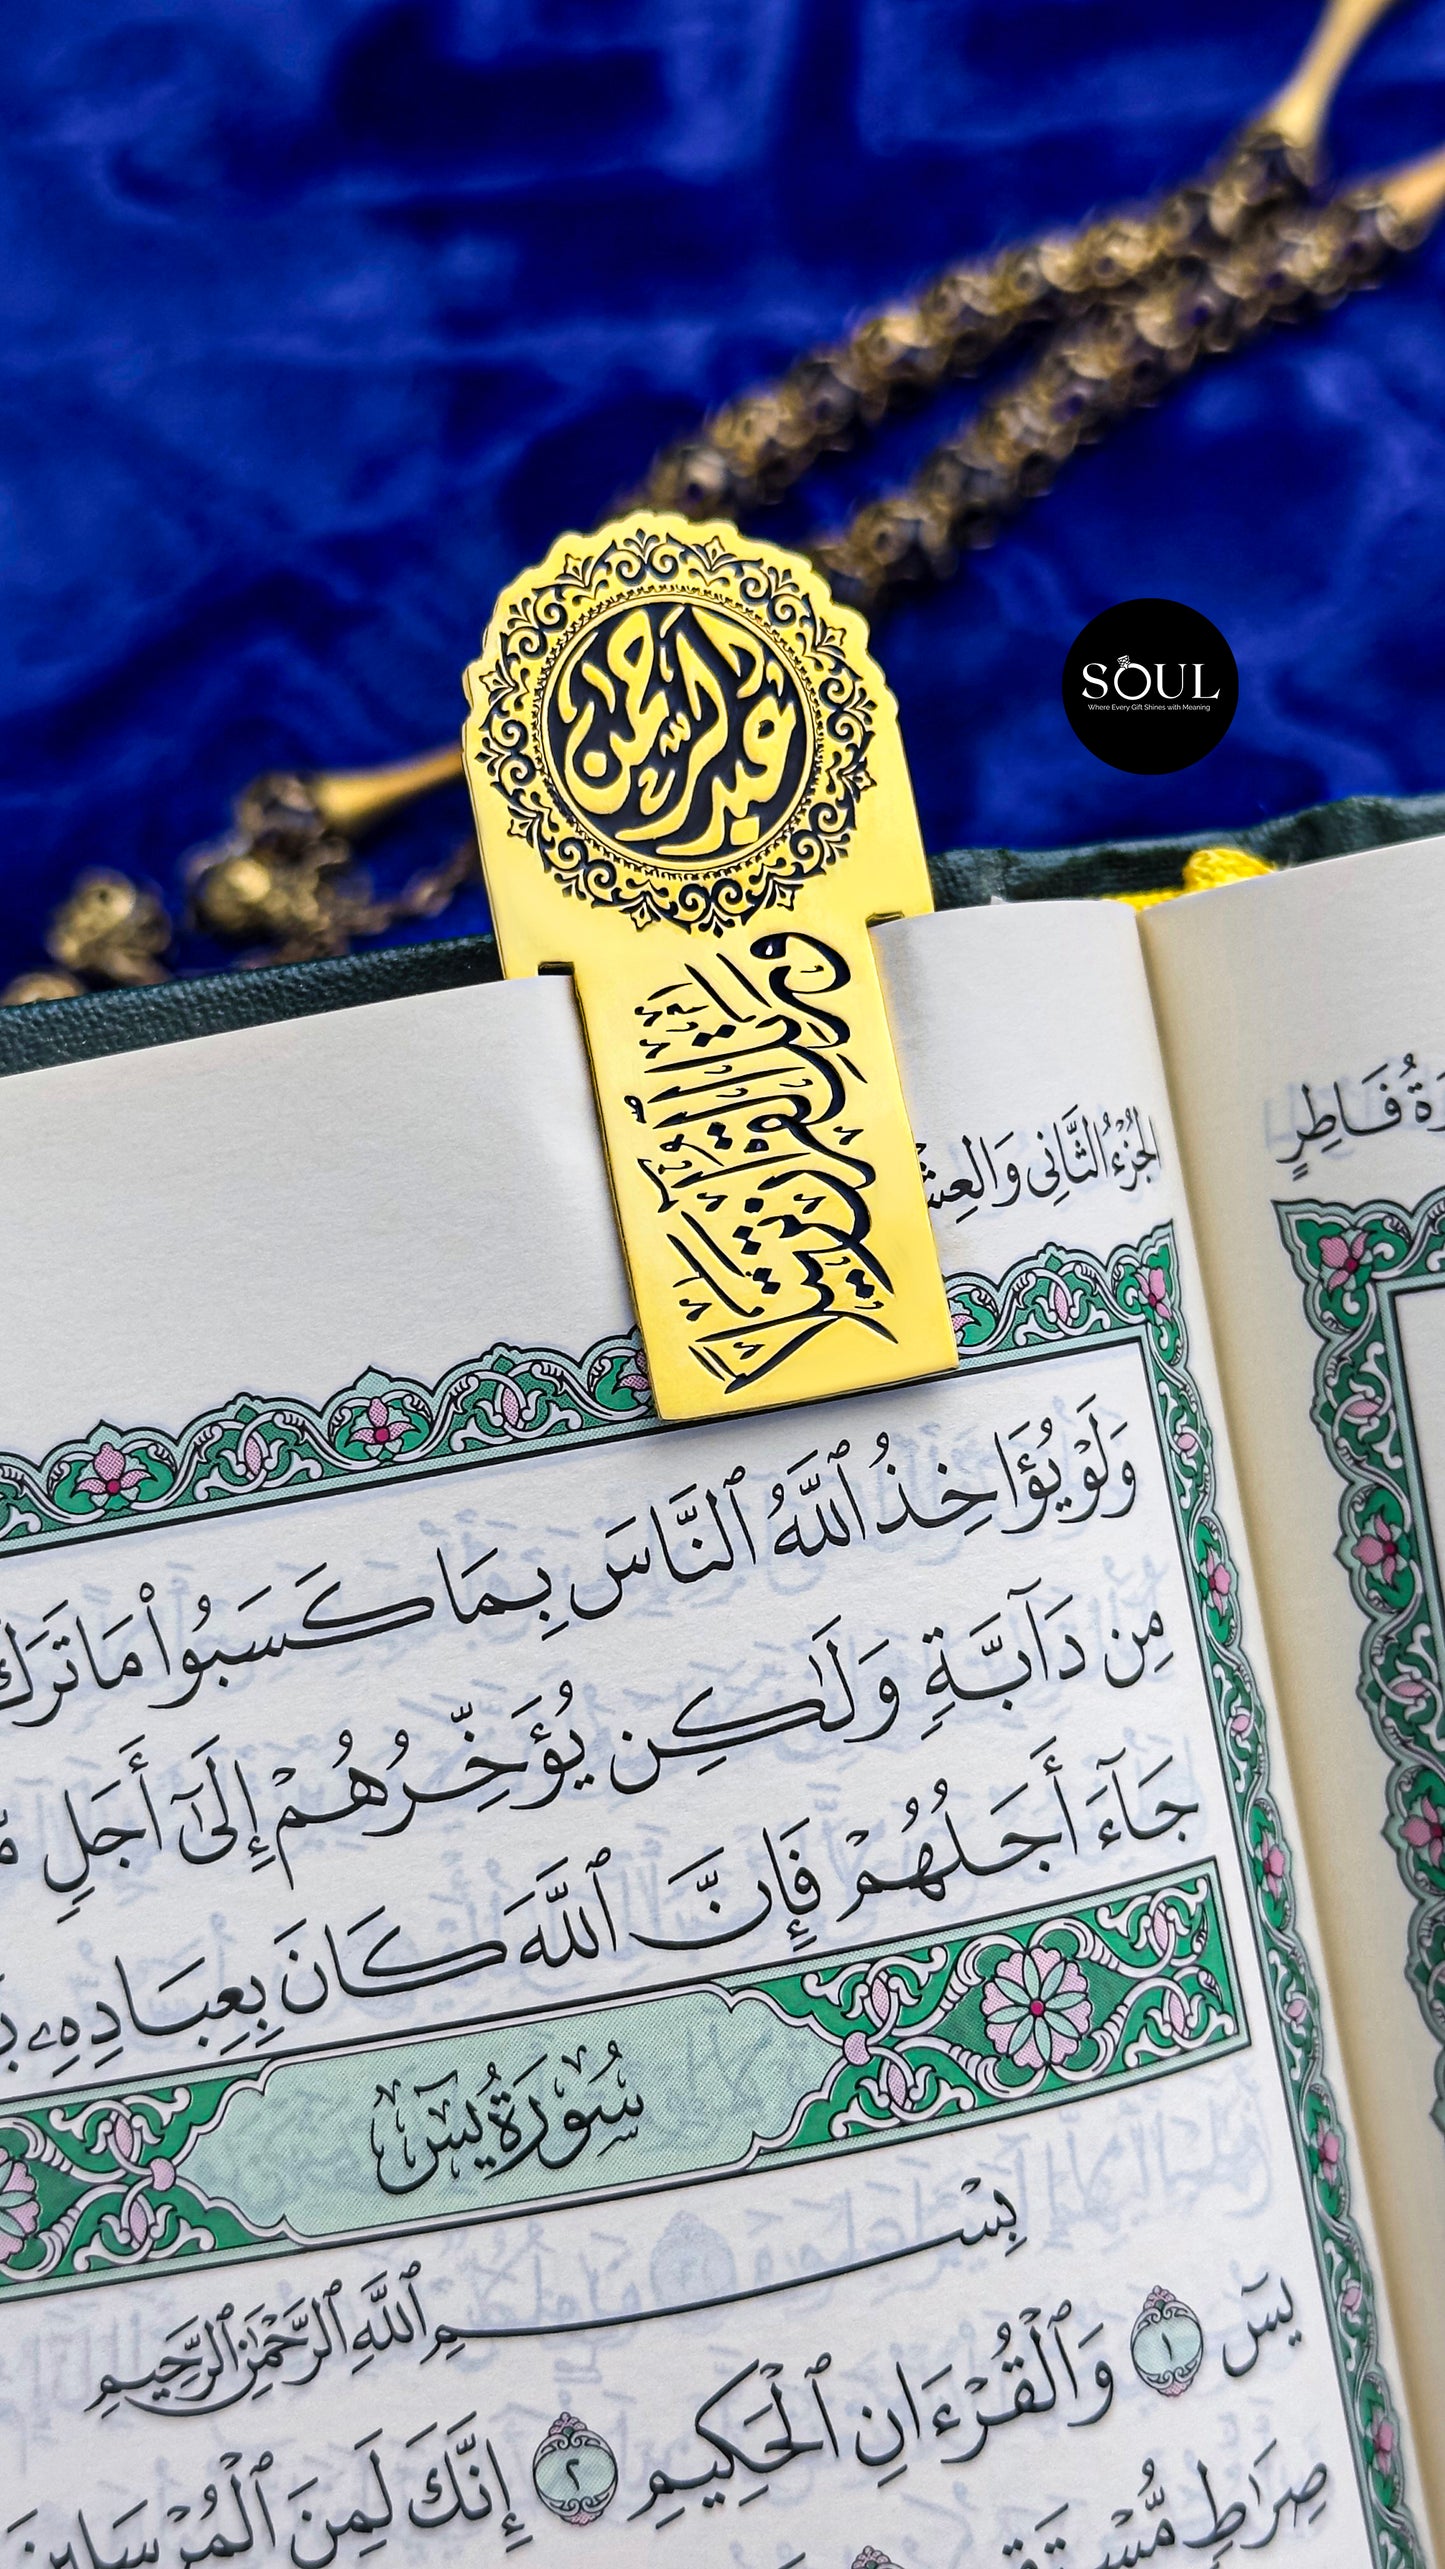 عبدالرحمن
SOUL
Where Every Gift Shines with Meaning
ورتل القرآن ترتيلا
الجُزْءُ الثَّانِي وَالعِشْ
رَةُ فَاطِرٍ
وَلَوْ يُؤَاخِذُ ٱللَّهُ ٱلنَّاسَ بِمَا كَسَبُوا۟ مَا تَرَكَ
مِن دَآبَّةٍ وَلَٰكِن يُؤَخِّرُهُمْ إِلَىٰٓ أَجَلٍ
جَآءَ أَجَلُهُمْ فَإِنَّ ٱللَّهَ كَانَ بِعِبَادِهِۦ
سُورَةُ يسٓ
بِسْمِ ٱللَّهِ ٱلرَّحْمَٰنِ ٱلرَّحِيمِ
يسٓ ١ وَٱلْقُرْءَانِ ٱلْحَكِيمِ ٢ إِنَّكَ لَمِنَ ٱلْمُرْسَلِينَ
صِرَٰطٍ مُّسْتَقِ